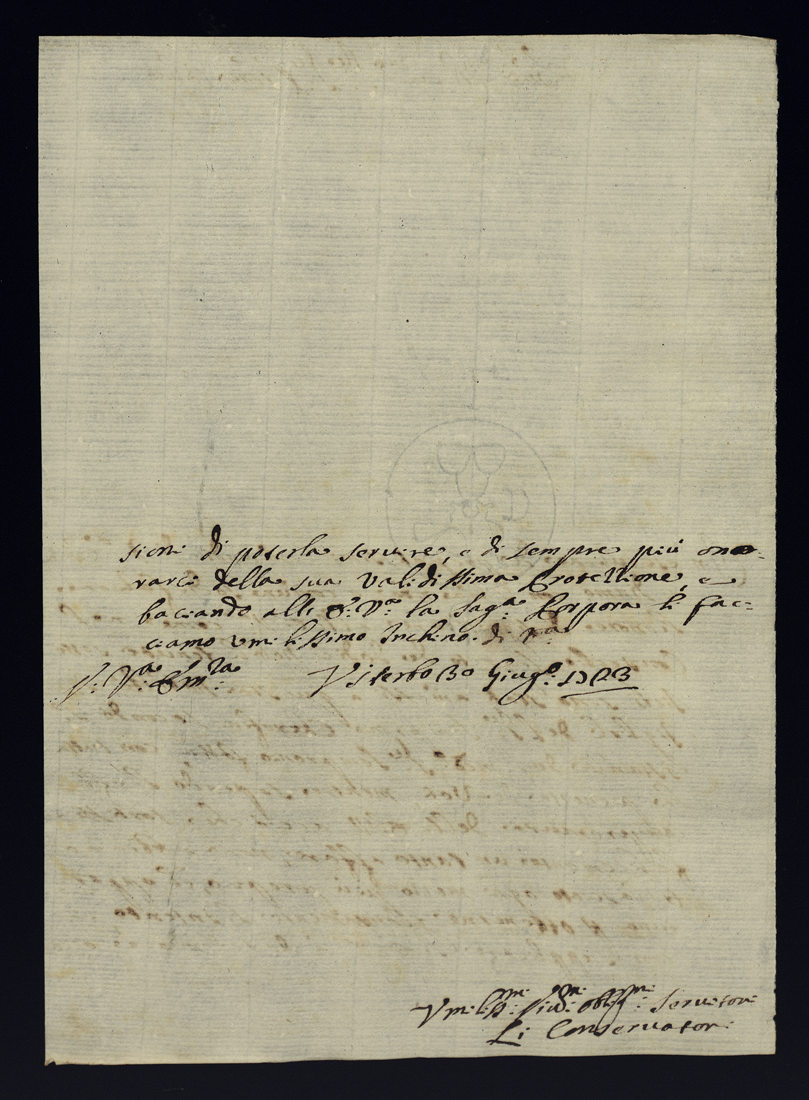 sioni di poterla servire, e di sempre più ono-
rarci della sua validissima Protettione, e
baciando all' E: Va: la Sag:a Porpora li fac-
ciamo vmilissimo Inchino. di Va
V: Va Em:za Viterbo 30 Giug:o 1703
Vmiliss:mi Diu:mi oblig:mi Seruitori
Li Conseruatori